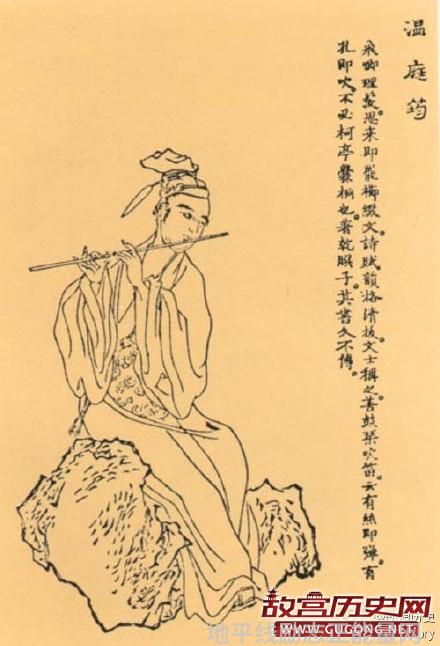 温庭筠
飛卿理髮。思来即罷櫛綴文。詩賦。韻格清拔。文士稱之。善鼓琴吹笛。云有絲即彈。有
孔即吹。不必柯亭爨桐也。著乾子。其書久不傳。
故宫历史网
WWW.GUGONG.NET
地平线励志正能量网